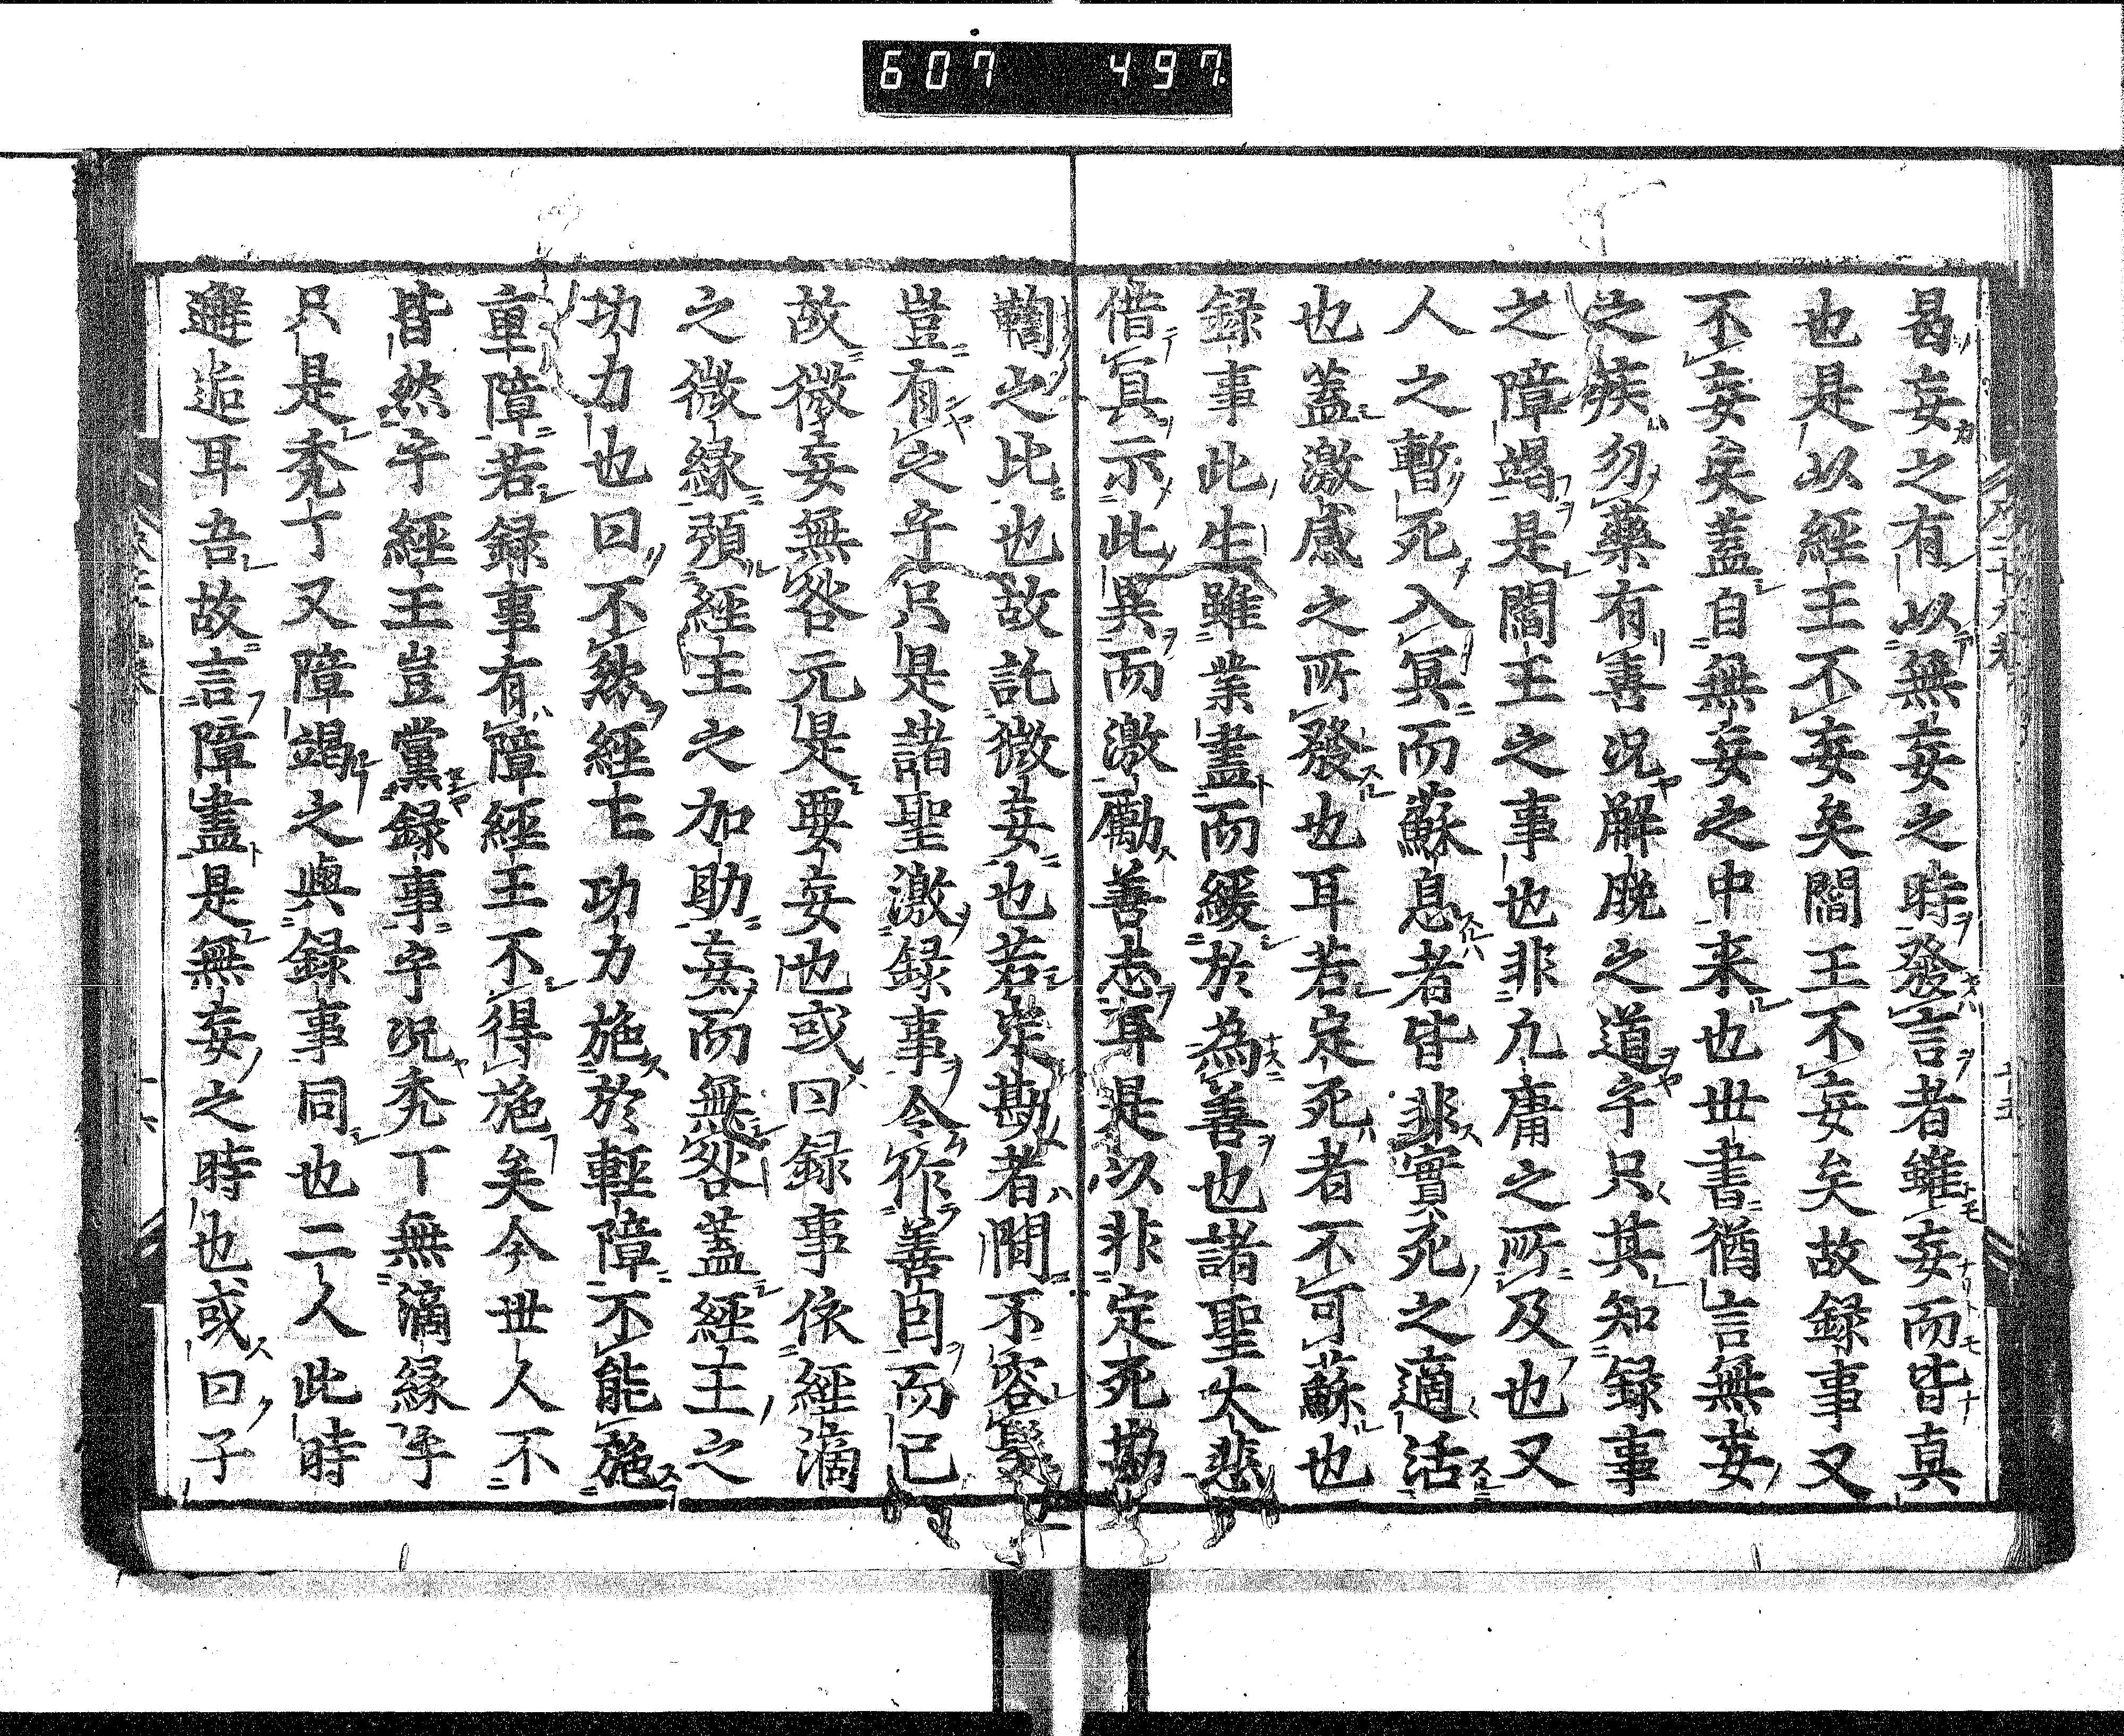 607 497
曷妄之有以無妄之時發言者雖妄而皆真
也是以經王不妄矣閻王不妄矣故録事又
不妄矣蓋自無妄之中来也世書猶言無妄
之疾勿藥有喜况解脫之道乎只其知録事
之障竭是閻王之事也非凢庸之所及也又
人之暫死入冥而蘇息者皆非實死之適活
也蓋激感之所發也耳若定死者不可蘇也
録事此生雖業盡而緩於為善也諸聖大悲
借冥示此異而激勵善志耳是以非定死勘
鞫之比也故託微妄也若定勘者間不容髮
豈有之乎只是諸聖激録事令作善因而已
故微妄無咎元是要妄也或曰録事依經滴
之微緣預經王之加助妄而無咎蓋經王之
功力也曰不然經王功力施於輕障不能施
重障若録事有障經王不得施矣今世人不
皆然乎經王豈黨録事乎况禿丁無滴緣乎
只是禿丁又障竭之與録事同也二人此時
邂逅耳吾故言障盡是無妄之時也或曰子